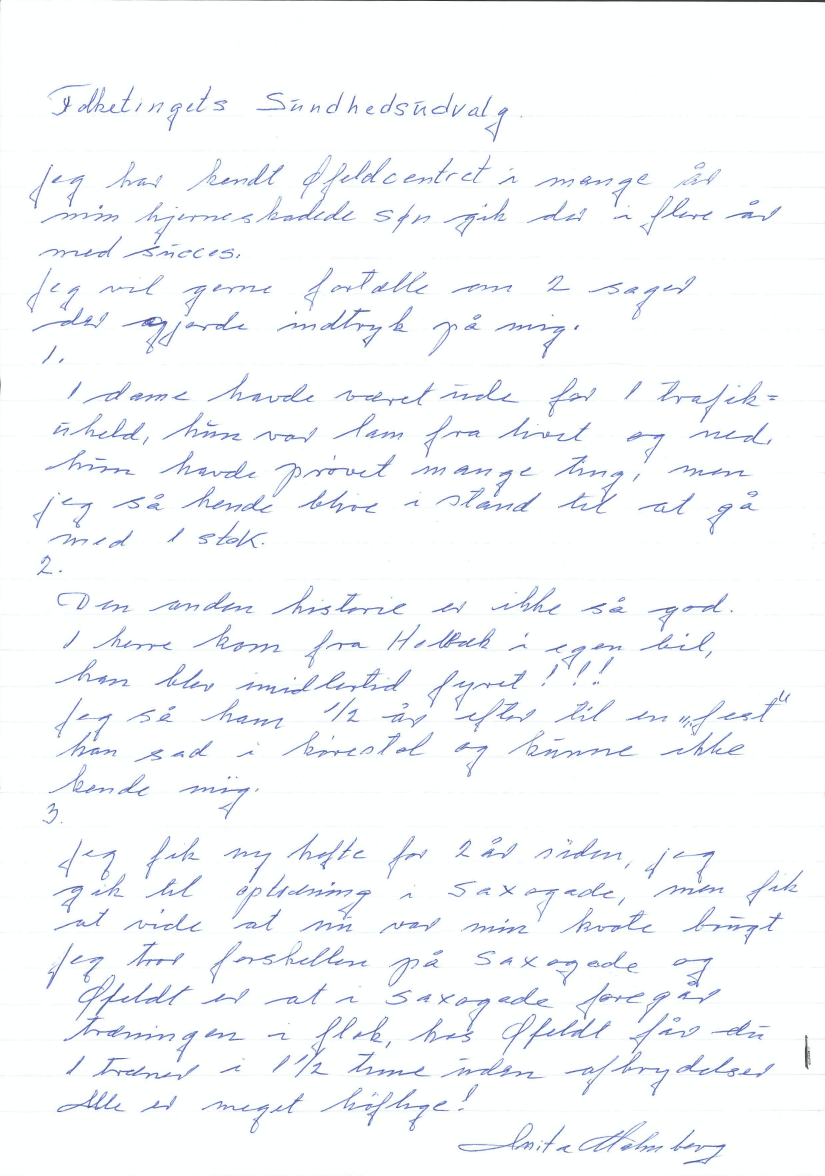 Folketingets Sundhedsudvalg.
Jeg har kendt Øfeldcentret i mange år
min hjerneskadede søn gik der i flere år
med succes.
Jeg vil gerne fortælle om 2 sager
der gjorde indtryk på mig.
1.
1 dame havde været ude for 1 trafik=
uheld, hun var lam fra livet og ned,
hun havde prøvet mange ting, men
jeg så hende blive i stand til at gå
med 1 stok.
2.
Den anden historie er ikke så god.
1 herre kom fra Holbæk i egen bil,
han blev imidlertid fyret!!!
Jeg så ham 1/2 år efter til en „fest"
han sad i kørestol og kunne ikke
kende mig.
3.
Jeg fik ny hofte for 2 år siden, jeg
gik til optræning i Saxogade, men fik
at vide at nu var min kvote brugt
Jeg tror forskellen på Saxogade og
Øfeldt er at i Saxogade foregår
træningen i flok, hos Øfeldt får du
1 træner i 1 1/2 time uden afbrydelser
Alle er meget høflige!
Anita Holmberg